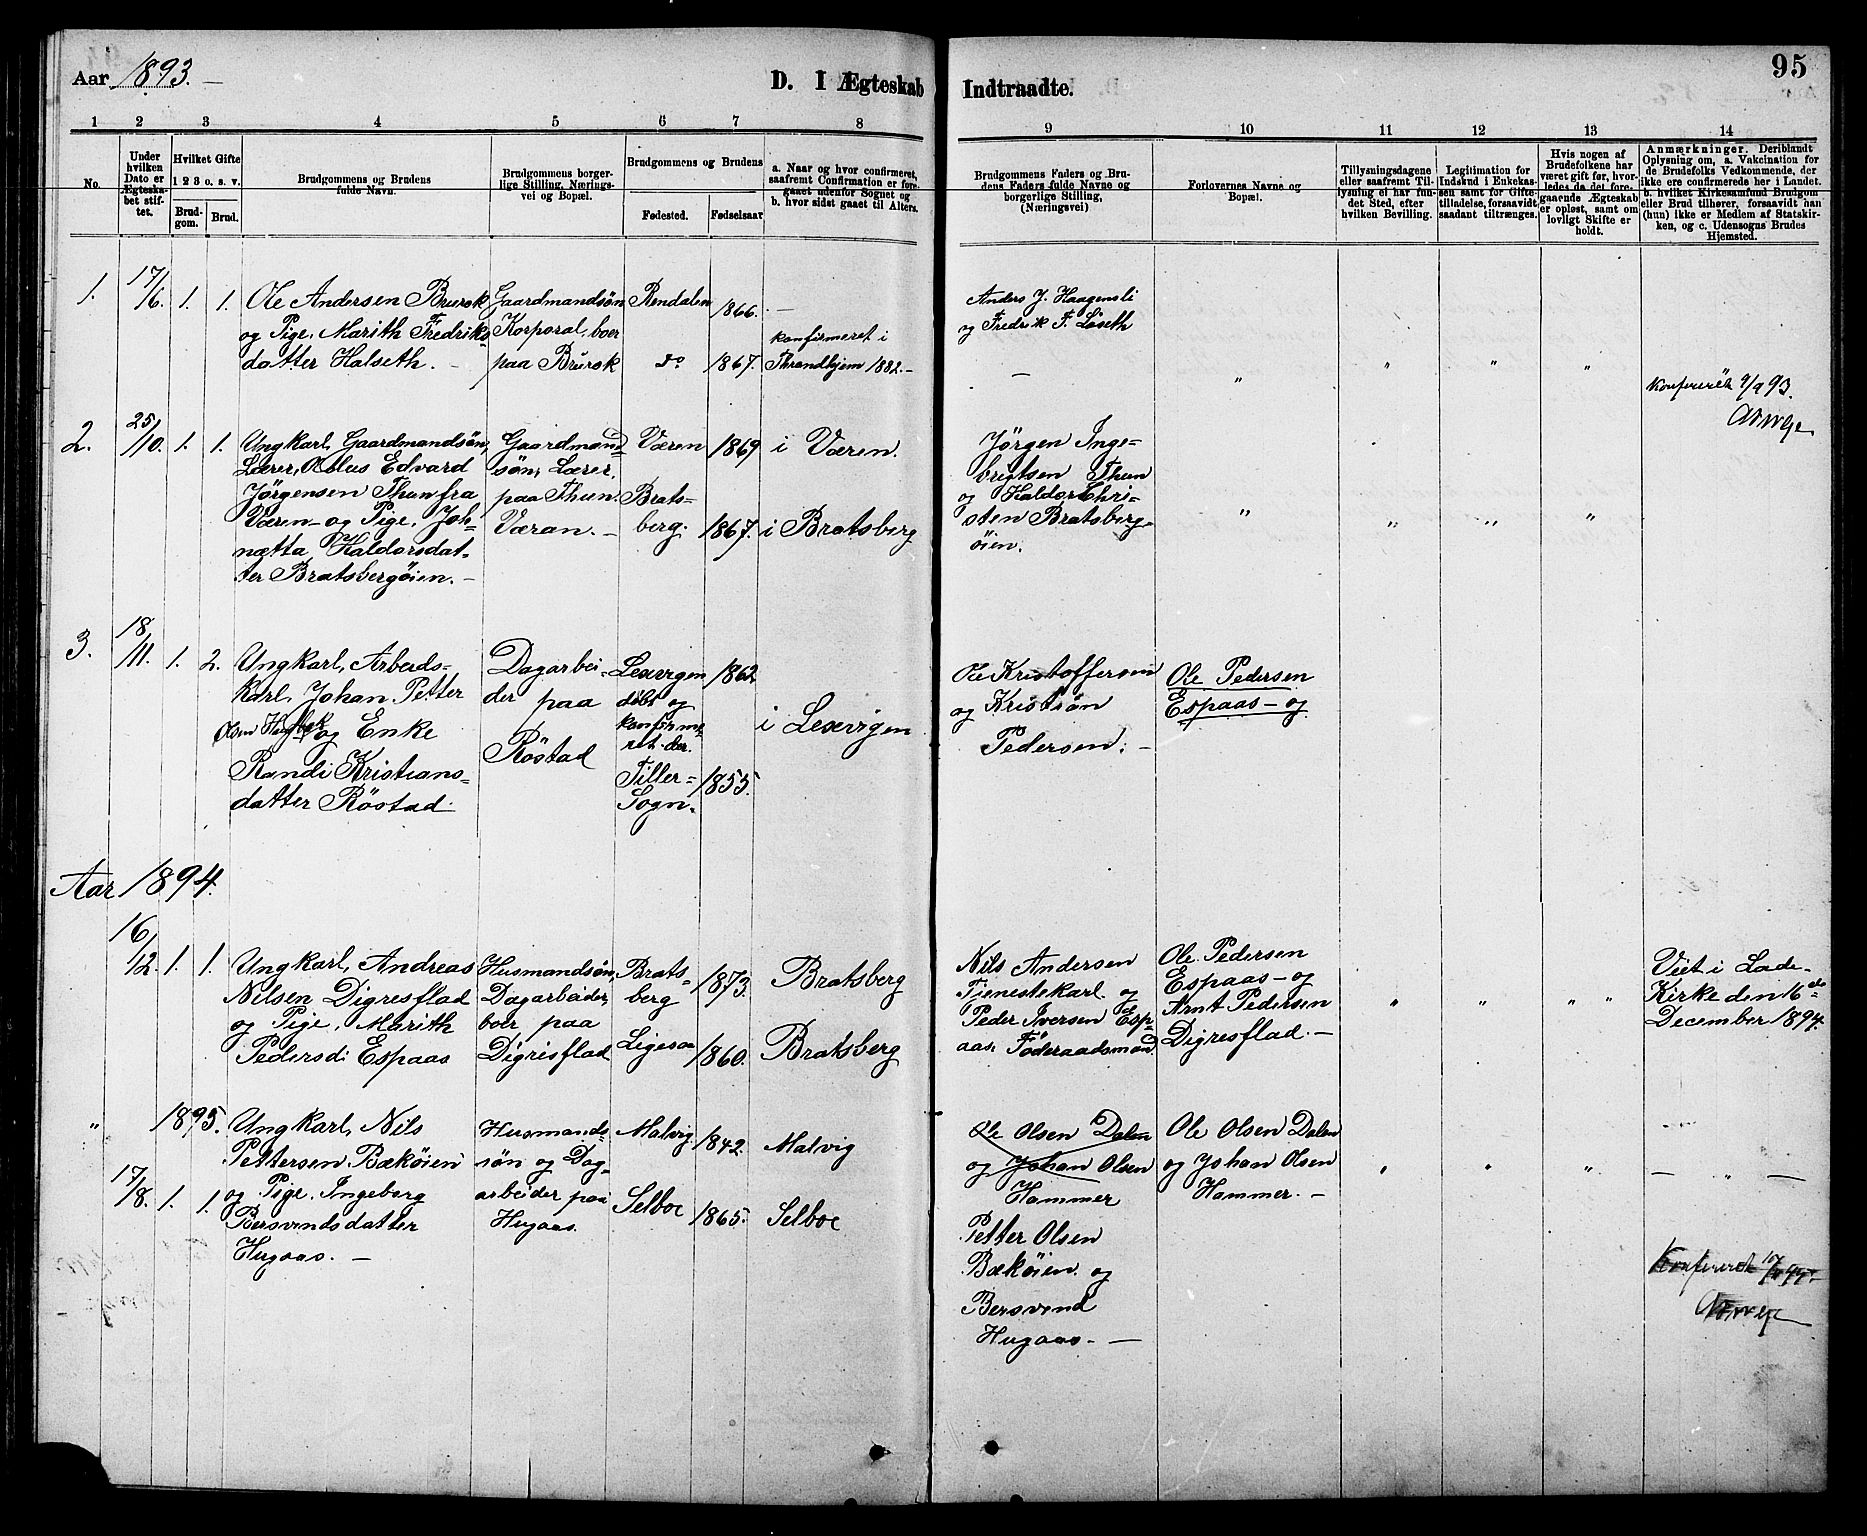 Aar 1893. —
D. I Ægteskab Indtraadte.
95
1 2 3 4 5 6 7 8 9 10 11 12 13 14
No.
Under hvilken Dato er Ægteskabet stiftet.
Hvilket Gifte
1 2 3 o. s. v.
Brudgom.
Brud.
Brudgommens og Brudens fulde Navn.
Brudgommens borgerlige Stilling, Næringsvei og Bopæl.
Brudgommens og Brudens
Fødested.
Fødselsaar
a. Naar og hvor confirmeret, saafremt Confirmation er foregaaet udenfor Sognet og b. hvor sidst gaaet til Alters.
Brudgommens Faders og Brudens Faders fulde Navne og borgerlige Stilling, (Næringsvei)
Forlovernes Navne og Bopæl.
Tillysningsdagene eller saafremt Tillysning ei har fundet Sted, efter hvilken Bevilling.
Legitimation for Indskud i Enkekassen samt for Giftetilladelse, forsaavidt saadant tiltrænges.
Hvis nogen af Brudefolkene har været gift før, hvorledes da det foregaaende Ægteskab er opløst, samt om lovligt Skifte er holdt.
Anmærkninger. Deriblandt Oplysning om, a. Vakcination for de Brudefolks Vedkommende, der ikke ere confirmerede her i Landet. b. hvilket Kirkesamfund Brudgom eller Brud tilhører, forsaavidt han (hun) ikke er Medlem af Statskirken, og c. Udensogns Brudes Hjemsted.
1. 17/6. 1. 1.
Ole Andersen Brurok
og Pige, Marith Fredriks-
datter Halseth. —
Gaardmandsøn
Korporal, boer
paa Brurok
Rendalen
do
1866. —
1867.
konfirmeret i
Thrandhjem 1882. —
Anders J. Haagensli
og Fredrik F. Løseth
—
" " " "
Konfereret 9/9 93.
2. 25/10. 1. 1.
Ungkarl, Gaardmandsøn,
Lærer, Edvard
Jørgensen Thun fra
Væren — og Pige, Joh-
nætta Haldorsdat-
ter Bratsbergøien. —
Gaardmand-
søn, Lærer,
paa Thun.
Væran. —
Væren
Brats-
berg.
1869
1867.
i Væren.
i Bratsberg
Jørgen Inge-
brigtsen Thun
og Haldor Chri-
sten Bratsberg-
øien.
" " " "
3. 18/11. 1. 2.
Ungkarl, Arbeids-
karl, Johan Petter
Olsen og Enke
Randi Kristians-
datter Röstad.
Dagarbei-
der paa
Röstad
Lexvigen
döbt og
konfirme-
ret der
Tiller-
Sogn.
1862
1855.
i Lexvigen
Ole Kristoffersen
og Kristian
Pedersen. —
Ole Pedersen
Espaas — og
Aar 1894.
16/12. 1. 1.
Ungkarl, Andreas
Nilsen Digresflad
og Pige, Marith
Pedersd: Espaas
Husmandsøn,
Dagarbeider,
boer paa
Digrisflad
Brats-
berg
Ligesaa
1873.
1860.
Bratsberg
Bratsberg
Nils Andersen
Tienestekarl og
Peder Iversen Esp-
aas, Föderaadsmand
Ole Pedersen
Espaas — og
Arnt Pedersen
Digresflad. —
" " " "
Viet i Lade-
Kirke den 16de
December 1894.
" 1895.
17/8. 1. 1.
Ungkarl, Nils
Pettersen Bækøien
og Pige, Ingeborg
Bersvendsdatter
Hugaas. —
Husmands-
søn og Dag-
arbeider paa
Hugaas.
Malvig
Selboe
1842.
1865.
Malvig
Selboe
Ole Olsen Dalen
og Johan Olsen
Hammer
Petter Olsen
Bækøien og
Bersvend
Hugaas. —
Ole Olsen Dalen
og Johan Olsen
Hammer. —
" " "
— " —
Konfereret